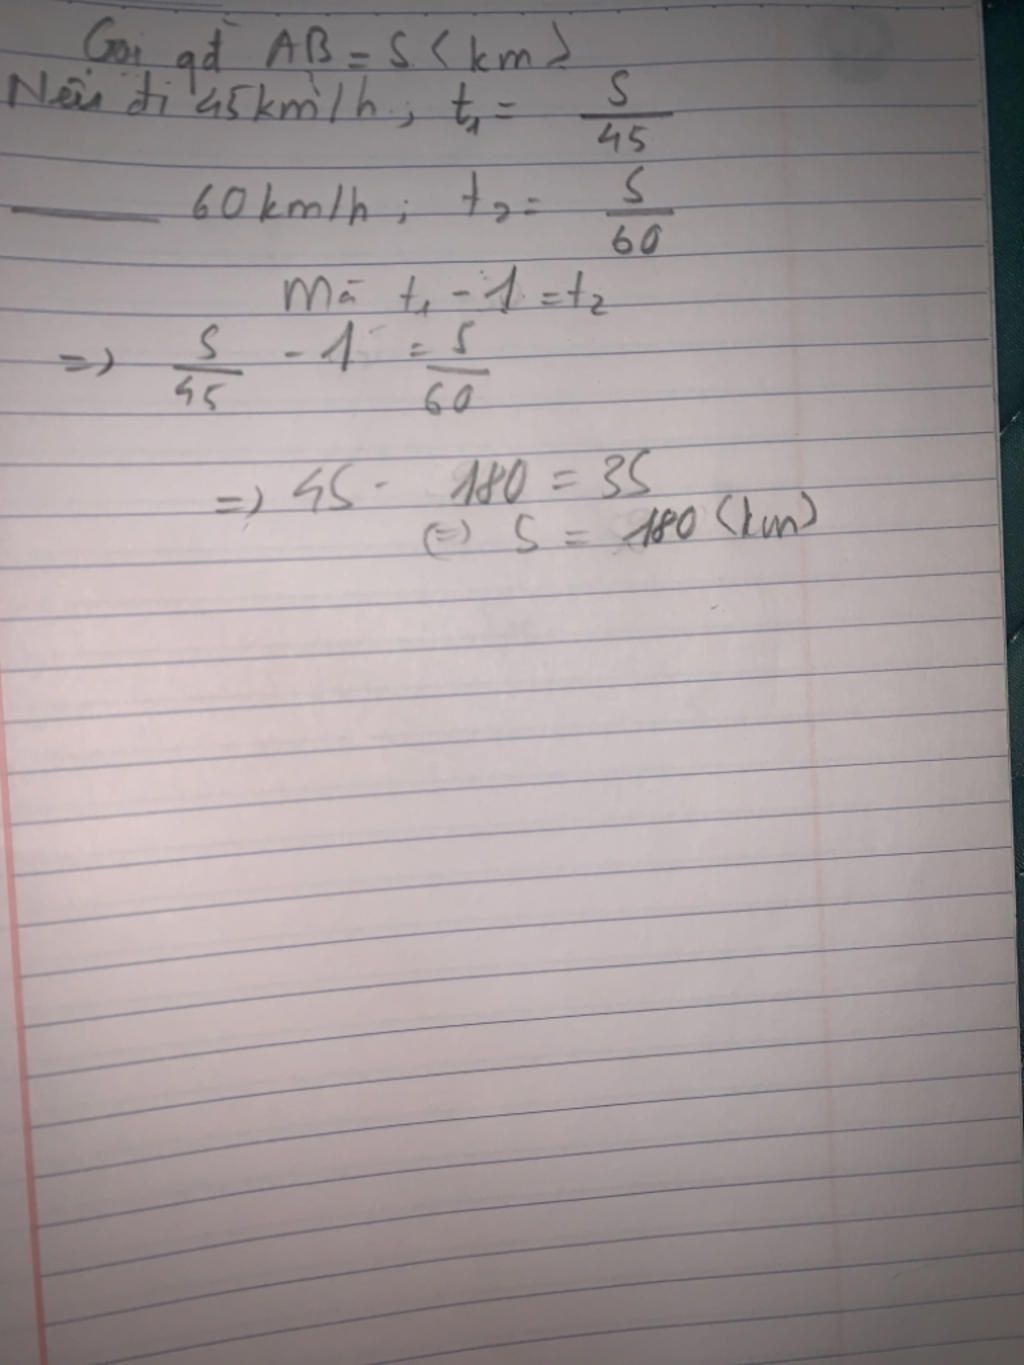 Gọi qđ AB = S (km)
Nếu đi 45km/h; t₁ = S/45
—— 60km/h; t₂ = S/60
Mà t₁ - 1 = t₂
=> S/45 - 1 = S/60
=> 4S - 180 = 3S
(=) S = 180 (km)